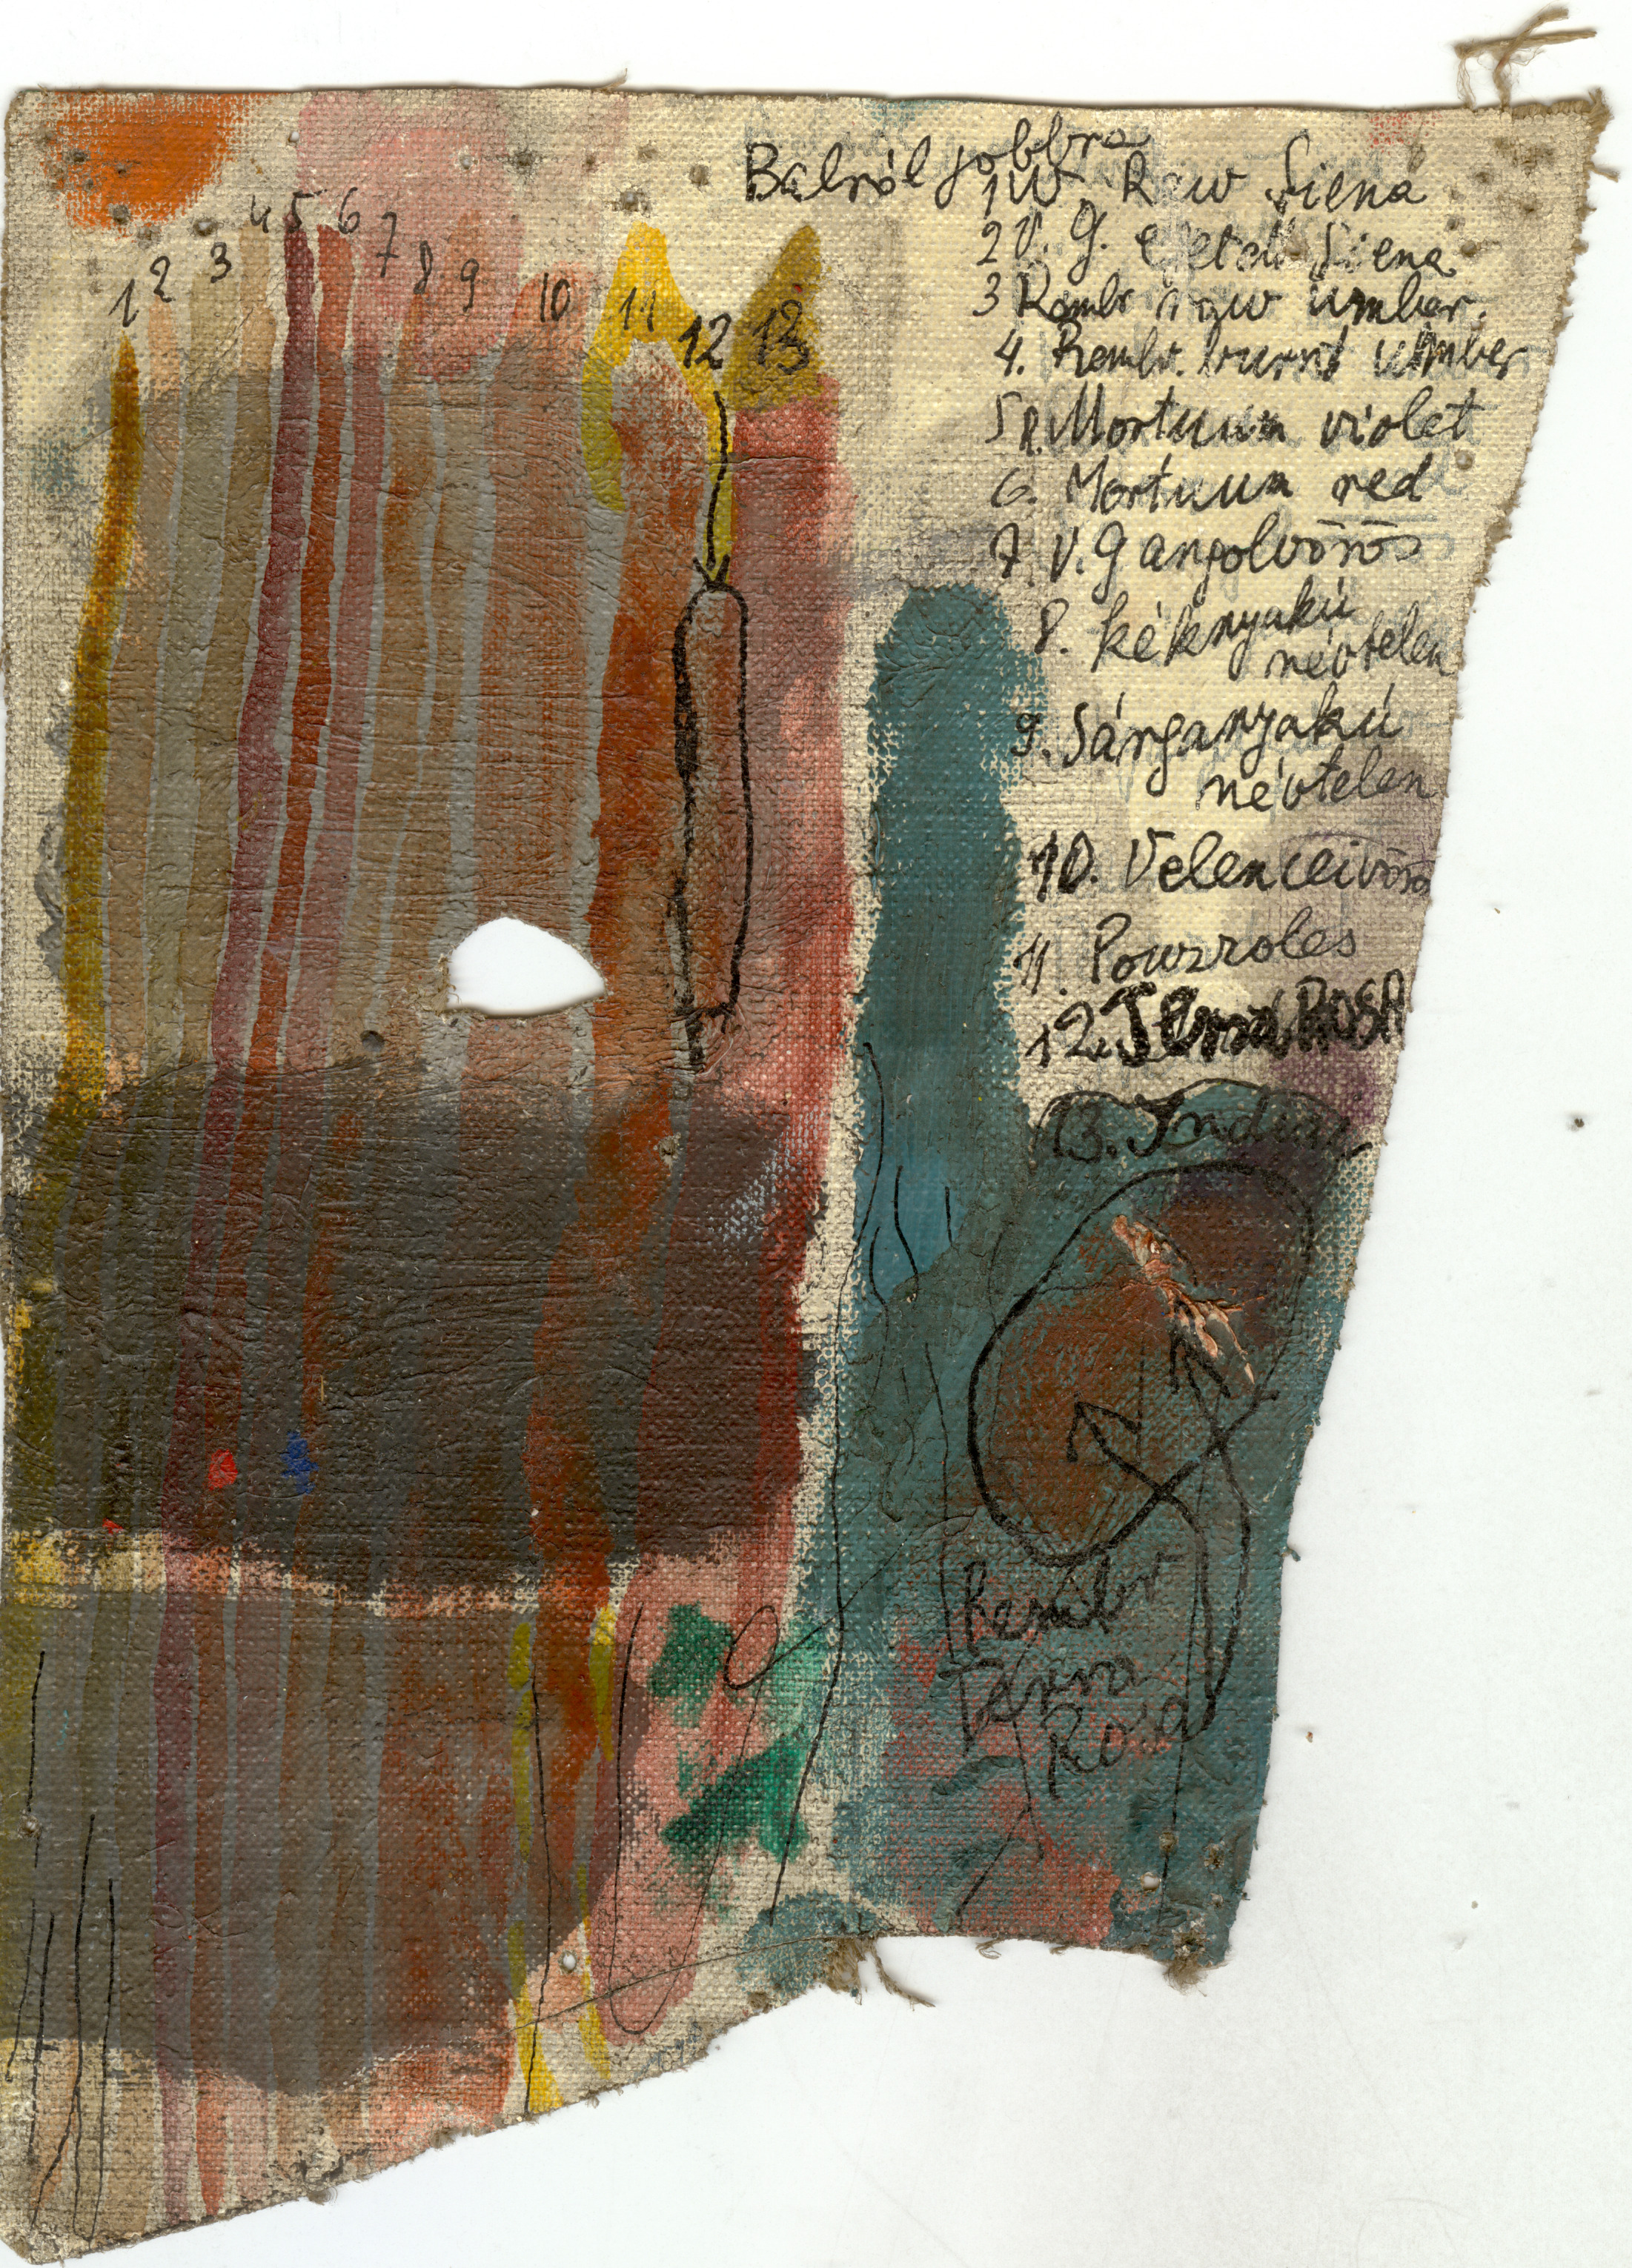 1 2 3 4 5 6 7 8 9 10 11 12 13
Balról jobbra
1 W Raw Siena
2 V. G. égetett Siena
3 Rembr raw umber.
4. Rembr. burnt umber
5 R. Mortuum violet
6. Mortuum red
7. V. G angolvörös
8. kéknyakú
névtelen
9. Sárganyakú
névtelen
10. Velenceivörös
11. Pouzzoles
12. Terra ROSA
13. Indian
Rembr
Terra
Rosa